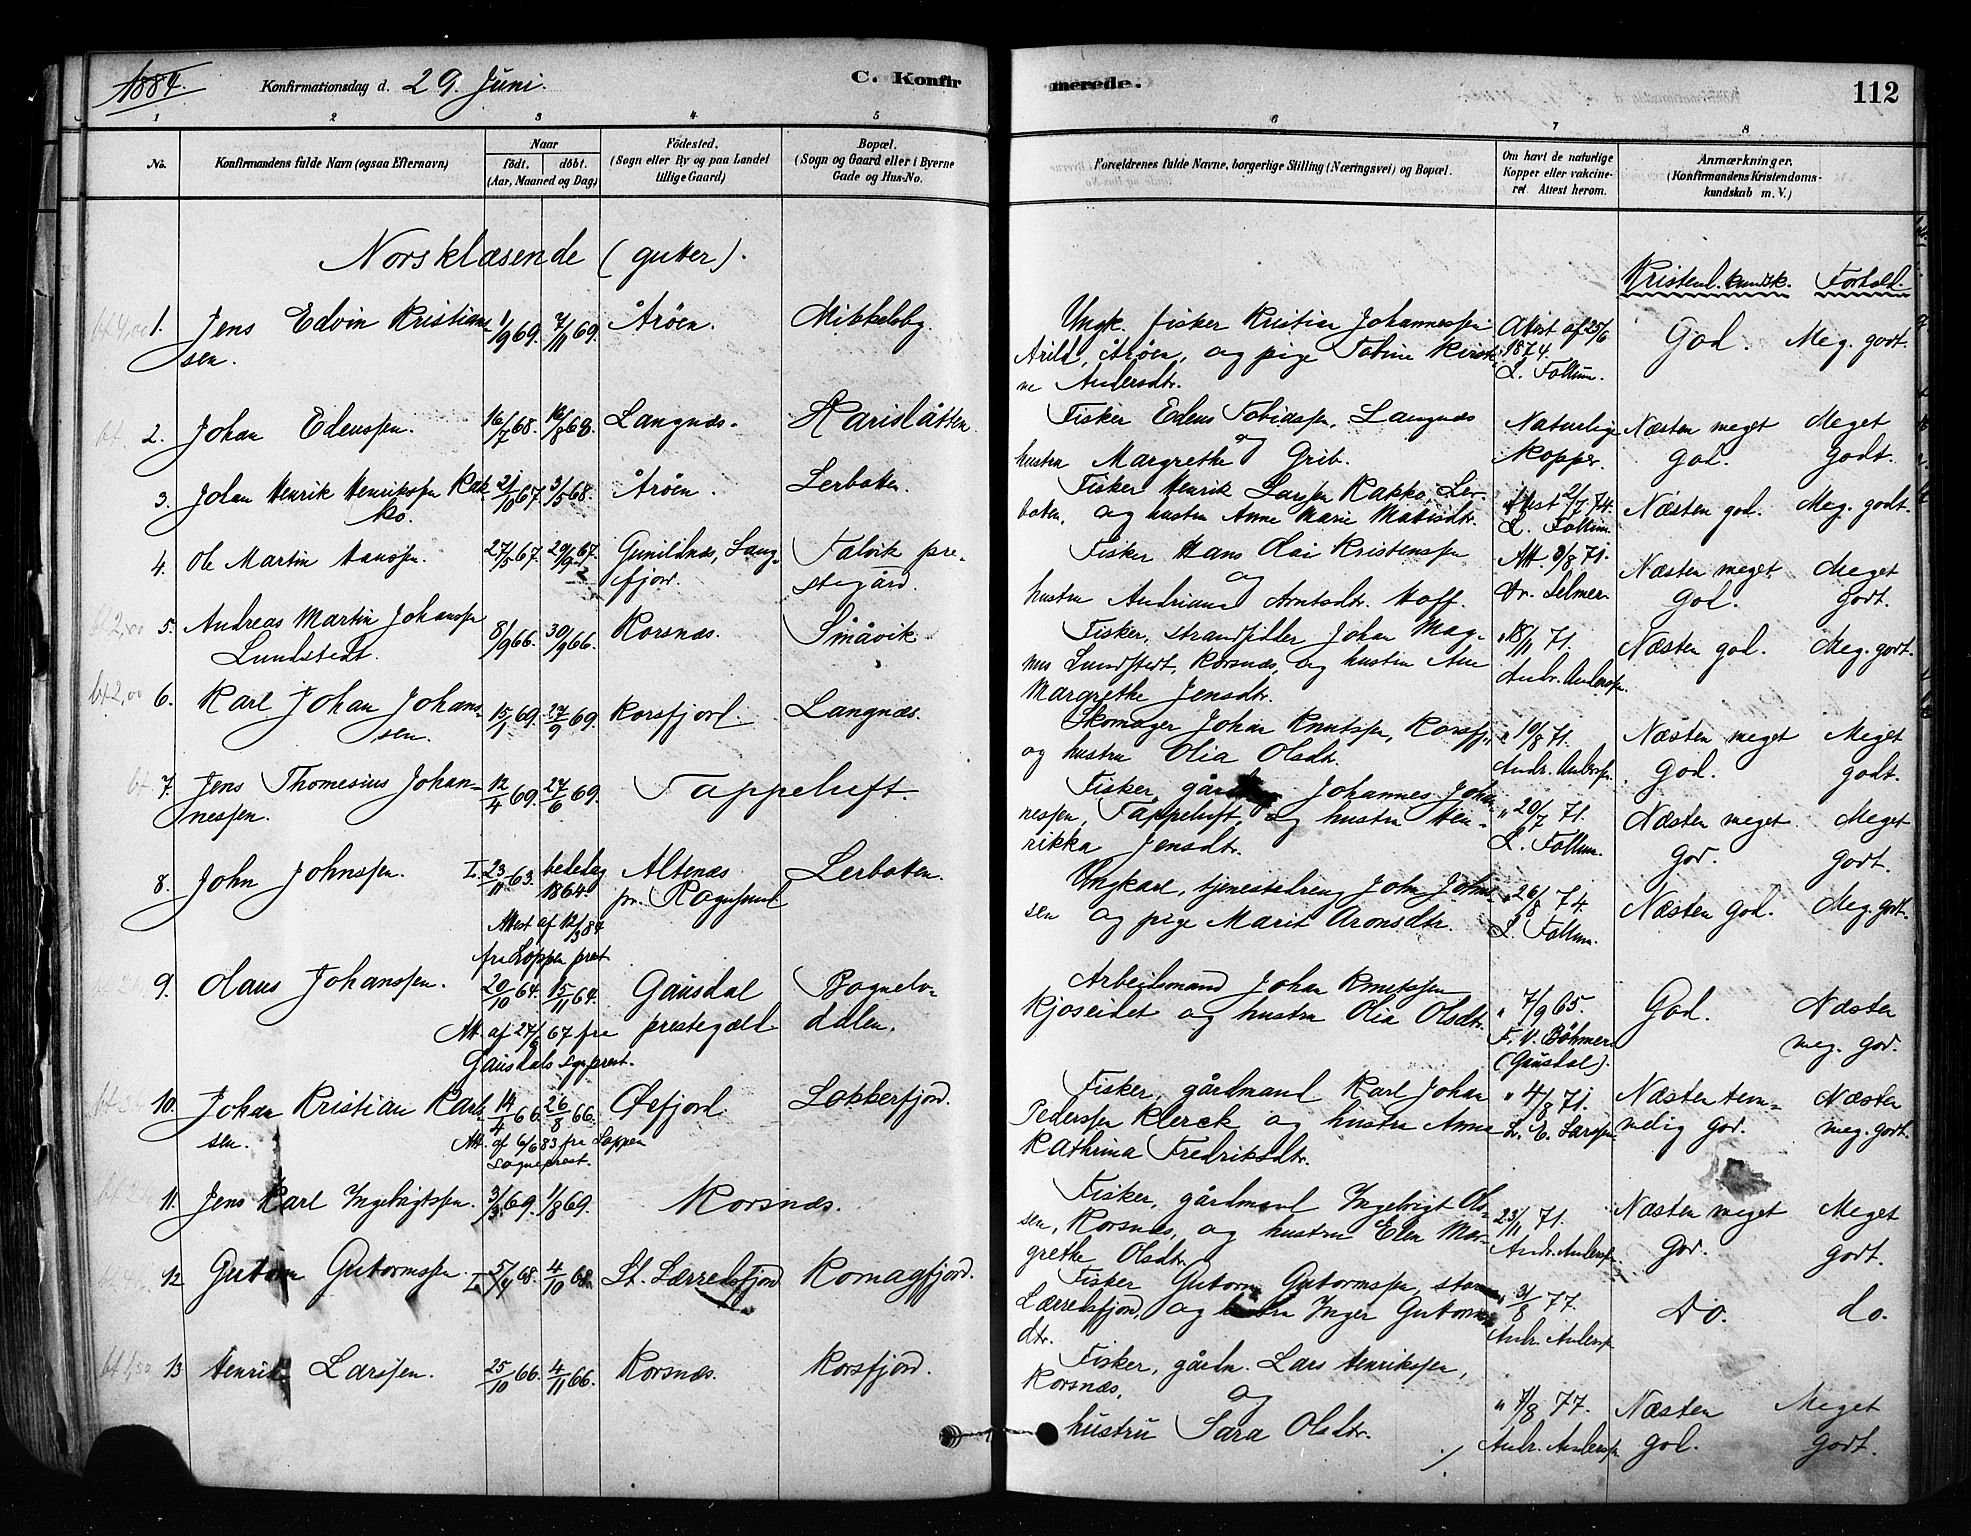 1884.
Konfirmationsdag d. 29. Juni.
C. Konfirmerede.
112
1 2 3 4 5 6 7 8
No.
Konfirmandens fulde Navn (ogsaa Efternavn)
Naar
født. døbt.
(Aar, Maaned og Dag)
Födested.
(Sogn eller By og paa Landet
tillige Gaard)
Bopæl.
(Sogn og Gaard eller i Byerne
Gade og Hus-No.
Forældrenes fulde Navne, borgerlige Stilling (Næringsvei) og Bopæl.
Om havt de naturlige
Kopper eller vakcine-
ret. Attest herom.
Anmærkninger.
(Konfirmandens Kristendoms-
kundskab m. V.)
Norsklæsende (gutter).
Kristend. kundsk. Forhold.
1. Jens Edvin Kristian-
sen.
1/9 69. 7/11 69. Årøen. Mikkelsby.
Ungk. fisker Kristian Johannessen
Arild, Årøen, og pige Tobine Kirsti-
ne Andersdtr.
Attest af 25/6
1874.
L. Follum.
God. Meg. godt.
2. Johan Edenssen. 16/7 68. 16/8 68. Langnæs. Harislåtten.
Fisker Edens Tobiassen, Langnæs
og
hustru Margrethe Grib.
Naturlige
Kopper.
Næsten meget
god.
Meget
godt.
3. Johan Henrik Henrikssen Rak-
ko.
21/10 67. 3/5 68. Årøen. Lerboten.
Fisker Henrik Larssen Rakko, Ler-
boten, og hustru Anne Marie Matisdtr.
Attest 2/7 74.
L. Follum.
Næsten god. Meg. godt.
4. Ole Martin Hanssen. 27/5 67. 29/9 67. Gunildnæs, Lang-
fjord.
Talvik pre-
stegård.
Fisker Hans Olai Kristenssen
og
hustru Andriane Arntsdtr. Hoff.
Att. 3/8 71.
Dr. Selmer.
Næsten meget
god.
Meget
godt.
5. Andreas Martin Johanssen
Lundstedt.
8/9 66. 30/9 66. Korsnæs. Småvik
Fisker, strandsidder Johan Mag-
nus Lundstedt, Korsnæs, og hustru Ane
Margrethe Jensdtr.
" 18/11 71.
Andr. Anderssen.
Næsten god. Meg. godt.
6. Karl Johan Johans-
sen.
15/1 69. 27/9 69. Korsfjord. Langnæs.
Skomager Johan Knutssen, Korsfj.,
og hustru Olia Olsdtr.
" 10/8 71.
Andr. Anderssen.
Næsten meget
god.
Meget
godt.
7. Jens Thomesius Johan-
nessen.
12/4 69. 27/6 69. Tappeluft.
Fisker, Johannes Johan-
nessen, Tappeluft, og hustru Hen-
rikka Jensdtr.
" 20/7 71.
L. Follum.
Næsten meget
god.
Meget
godt.
8. John Johnssen. I. 23/11 63. bededag
1864.
Altenæs
pr. Rognsund
Lerboten.
Attest af 12/3 84
fra Loppen prest
Ungkarl, tjenestedreng John Johns-
sen og pige Marit Aronsdtr.
" 26/8 74.
L. Follum.
Næsten god. Meg. godt.
9. Olaus Johanssen. 20/10 64. 15/11 64. Gausdal
prestegæld
Bognelv-
dalen.
Att. af 27/6 67 fra
Gausdals sognprest.
Arbeidsmand Johan Knutssen
Kjoseidet og hustru Olia Olsdtr.
" 7/9 65.
F. V. Böhmer
(Gausdal).
God. Næsten
meg. god.
10. Johan Kristian Karl-
sen.
14/4 66. 26/8 66. Øxfjord. Lokkerfjord.
Att. af 6/6 83 fra Loppen
sogneprest.
Fisker, gårdmand Karl Johan
Pederssen Klerck og hustru Anna
Kathrina Fredriksdtr.
" 4/8 71.
L. E. Larssen.
Næsten tem-
melig god.
Næsten
meg. godt.
11. Jens Karl Ingebrigtssen. 3/3 69. 1/8 69. Korsnæs.
Fisker, gårdmand Ingebrigt Ols-
sen, Korsnæs, og hustru Elen Mar-
grethe Olsdtr.
23/11 71.
Andr. Anderss.
Næsten meget
god.
Meget
godt.
12 Gutorm Gutormssen. I. 5/4 68. 4/10 68. St. Lærredsfjord Komagfjord.
Fisker Gutorm Gutormssen, store
Lærredsfjord, og hustru Inger Gutorms-
dtr.
" 31/8 77.
Andr. Anderss.
Do. do.
13 Henrik Larssen. 25/10 66. 4/11 66. Korsnæs. Korsfjord.
Fisker, gårdm. Lars Henrikssen,
Korsnæs,
og
hustru Sara Olsdtr.
" 1/8 77.
Andr. Anderss.
Næsten
god.
Meget
godt.